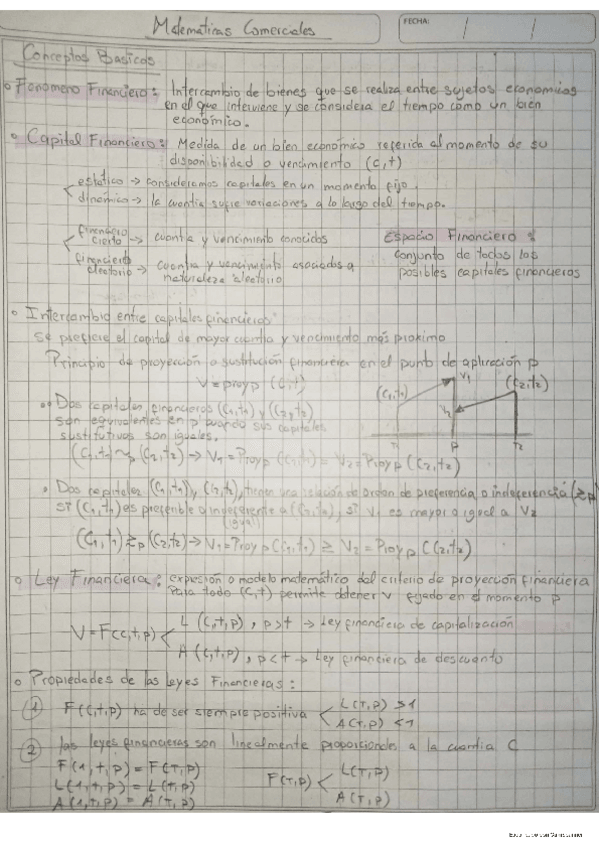 Matemáticas Comerciales
FECHA:
Conceptos Basicos
Fenomeno Financiero: Intercambio de bienes que se realiza entre sujetos economicos
en el que interviene y se considera el tiempo como un bien
económico.
Capital Financiero: Medida de un bien económico referida al momento de su
disponibilidad o vencimiento (C,t)
estático → consideramos capitales en un momento fijo.
dinómico → la cuantía sufre variaciones a lo largo del tiempo.
financiero cierto → cuantía y vencimiento conocidos
financiero aleatorio → cuantía y vencimiento asociados a
naturaleza aleatorio
Espacio Financiero:
conjunto de todos los
posibles capitales financieros
Intercambio entre capitales financieros:
Se prefiere el capital de mayor cuantía y vencimiento más proximo
Principio de proyección o sustitución financiera en el punto de aplicación p
V = proy p (C,t)
(C1,t1) V1 (C2,t2)
V2
T1 P T2
Dos capitales financieros (C1,t1) y (C2,t2)
son equivalentes en p cuando sus capitales
sustitutivos son iguales.
(C1,t1) ~p (C2,t2) → V1 = Proyp (C1,t1) = V2 = Proyp (C2,t2)
Dos capitales (C1,t1) y (C2,t2), tienen una relación de orden de preferencia o indeferencia (≿p)
si (C1,t1) es preferible o indeferente a (C2,t2), si V1 es mayor o igual a V2
(igual)
(C1,t1) ≿p (C2,t2) → V1 = Proyp (C1,t1) ≥ V2 = Proyp (C2,t2)
Ley Financiera: expresión o modelo matemático del criterio de proyección financiera
Para todo (C,t) permite obtener V fijado en el momento p
V = F(C,t,p)
L (C,t,p), p>t → Ley financiera de capitalización
A (C,t,p), p<t → Ley financiera de descuento
Propiedades de las leyes Financieras:
1 F(C,t,p) ha de ser siempre positiva
L(T,P) >1
A(T,P) <1
2 las leyes financieras son linealmente proporcionales a la cuantía C
F(1,t,p) = F(T,P)
L(1,t,p) = L(t,p)
A(1,t,p) = A(t,p)
F(T,P)
L(T,P)
A(T,P)